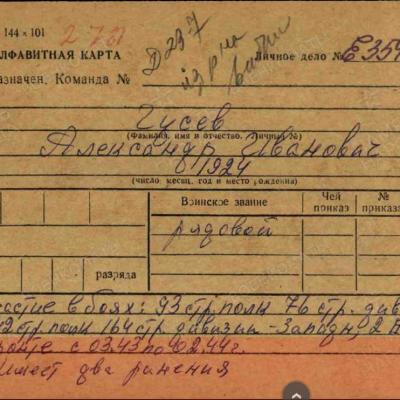 144 × 101
АЛФАВИТНАЯ КАРТА
Личное дело № Е354
азначен. Команда №
Д 23-7
Гусев
(Фамилия, имя и отчество. Личный №)
Александр Иванович
1924
(число, месяц, год и место рождения)
Воинское звание
Чей приказ
№ приказа
рядовой
разряда
частие в боях: 93 стр. полк 76 стр. див
2 стр. полк 164 стр. дивизии - Западн, 2
фронте с 03.43 по 02.44 г.
Имеет два ранения